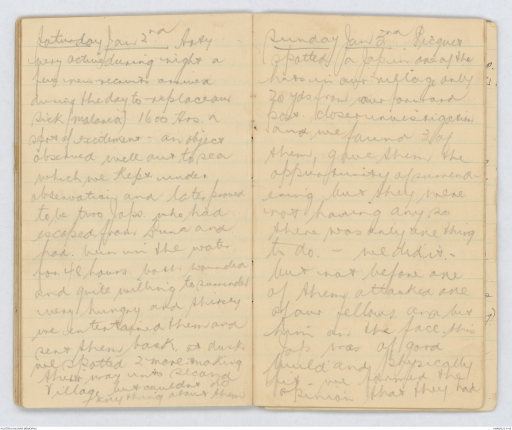 Saturday Jan 2nd Arty
very active during night a
few new recruits arrived
during the day to replace our
sick (malaria) 1600 hrs. a
spot of excitement - an object
observed well out to sea
which we kept under
observation and later proved
to be two Japs. who had
escaped from Buna and
had been in the water
for 48 hours, both wounded
and quite willing to surrender
very hungry and thirsty
we entertained them and
sent them back. at dusk
we spotted 2 more making
their way into second
village but couldn't do
anything about them
Sunday Jan 3rd Picquet
spotted a Jap in one of the
huts in our village only
70 yds from our forward
post. closer investigation
and we found 3 of
them, gave them the
opportunity of surrend-
ering but they were
not having any so
there was only one thing
to do. - we did it -
but not before one
of them attacked one
of our fellows and bit
him on the face. this
Jap was of good
build and physically
fit - we formed the
opinion that they had